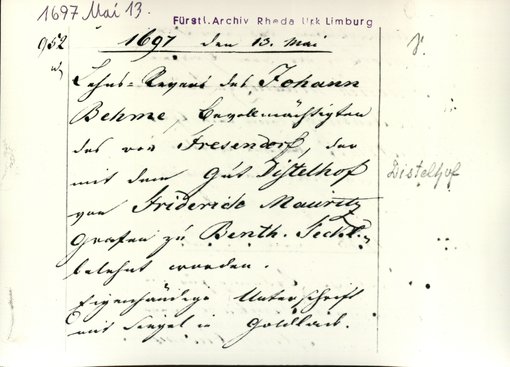 1697 Mai 13.
Fürstl. Archiv Rheda Urk Limburg
952 1697 den 13. Mai V.
Lehns-Revers des Johann
Behme, Bevollmächtigten
des von Fresendorf, der
mit dem Gut Distelhof
von Friderich Mauritz
Distelhof
Grafen zu Benth. Teckl.
belehnt worden.
Eigenhändige Unterschrift
mit Siegel in